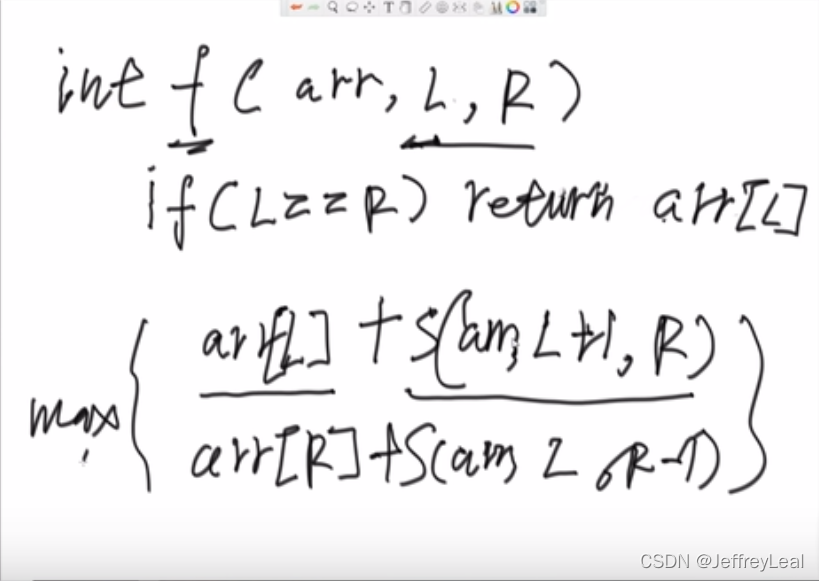 int f ( arr, L, R )
if (L==R) return arr[L]
max { arr[L] + S(arr, L+1, R)
arr[R]+S(arr, L, R-1) }
CSDN @JeffreyLeal